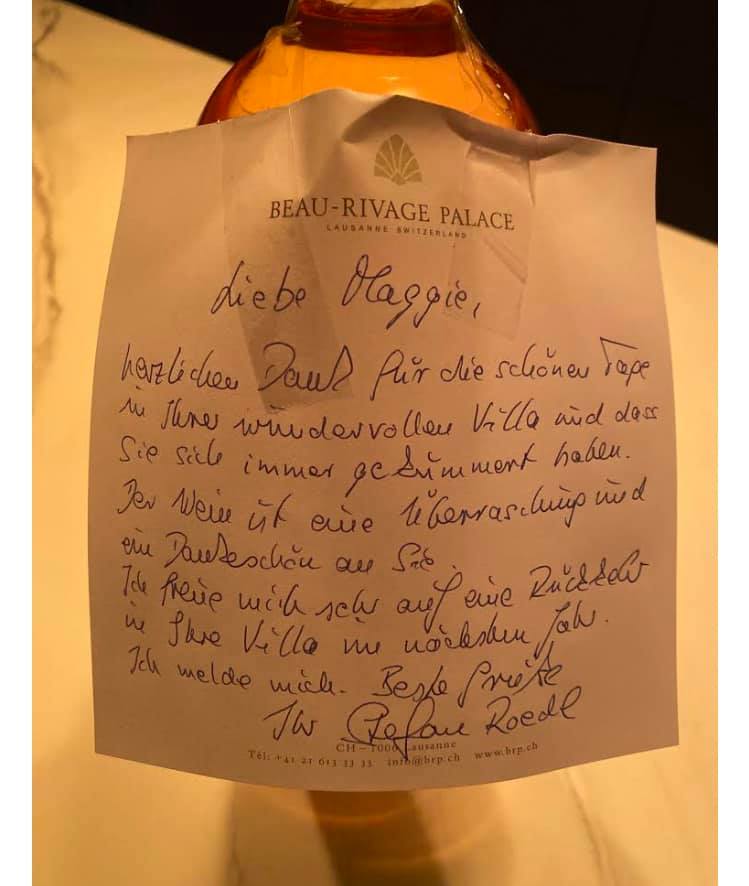 BEAU-RIVAGE PALACE
LAUSANNE SWITZERLAND
Liebe Maggie,
herzlichen Dank für die schönen Tage
in Ihrer wundervollen Villa und dass
Sie sich immer gekümmert haben.
Der Wein ist eine Überraschung und
ein Dankeschön an Sie.
Ich freue mich sehr auf eine Rückkehr
in Ihre Villa im nächsten Jahr.
Ich melde mich. Beste Grüße
Ihr Stefan Roedl
CH – 1000 Lausanne
Tél: +41 21 613 33 33 info@brp.ch www.brp.ch